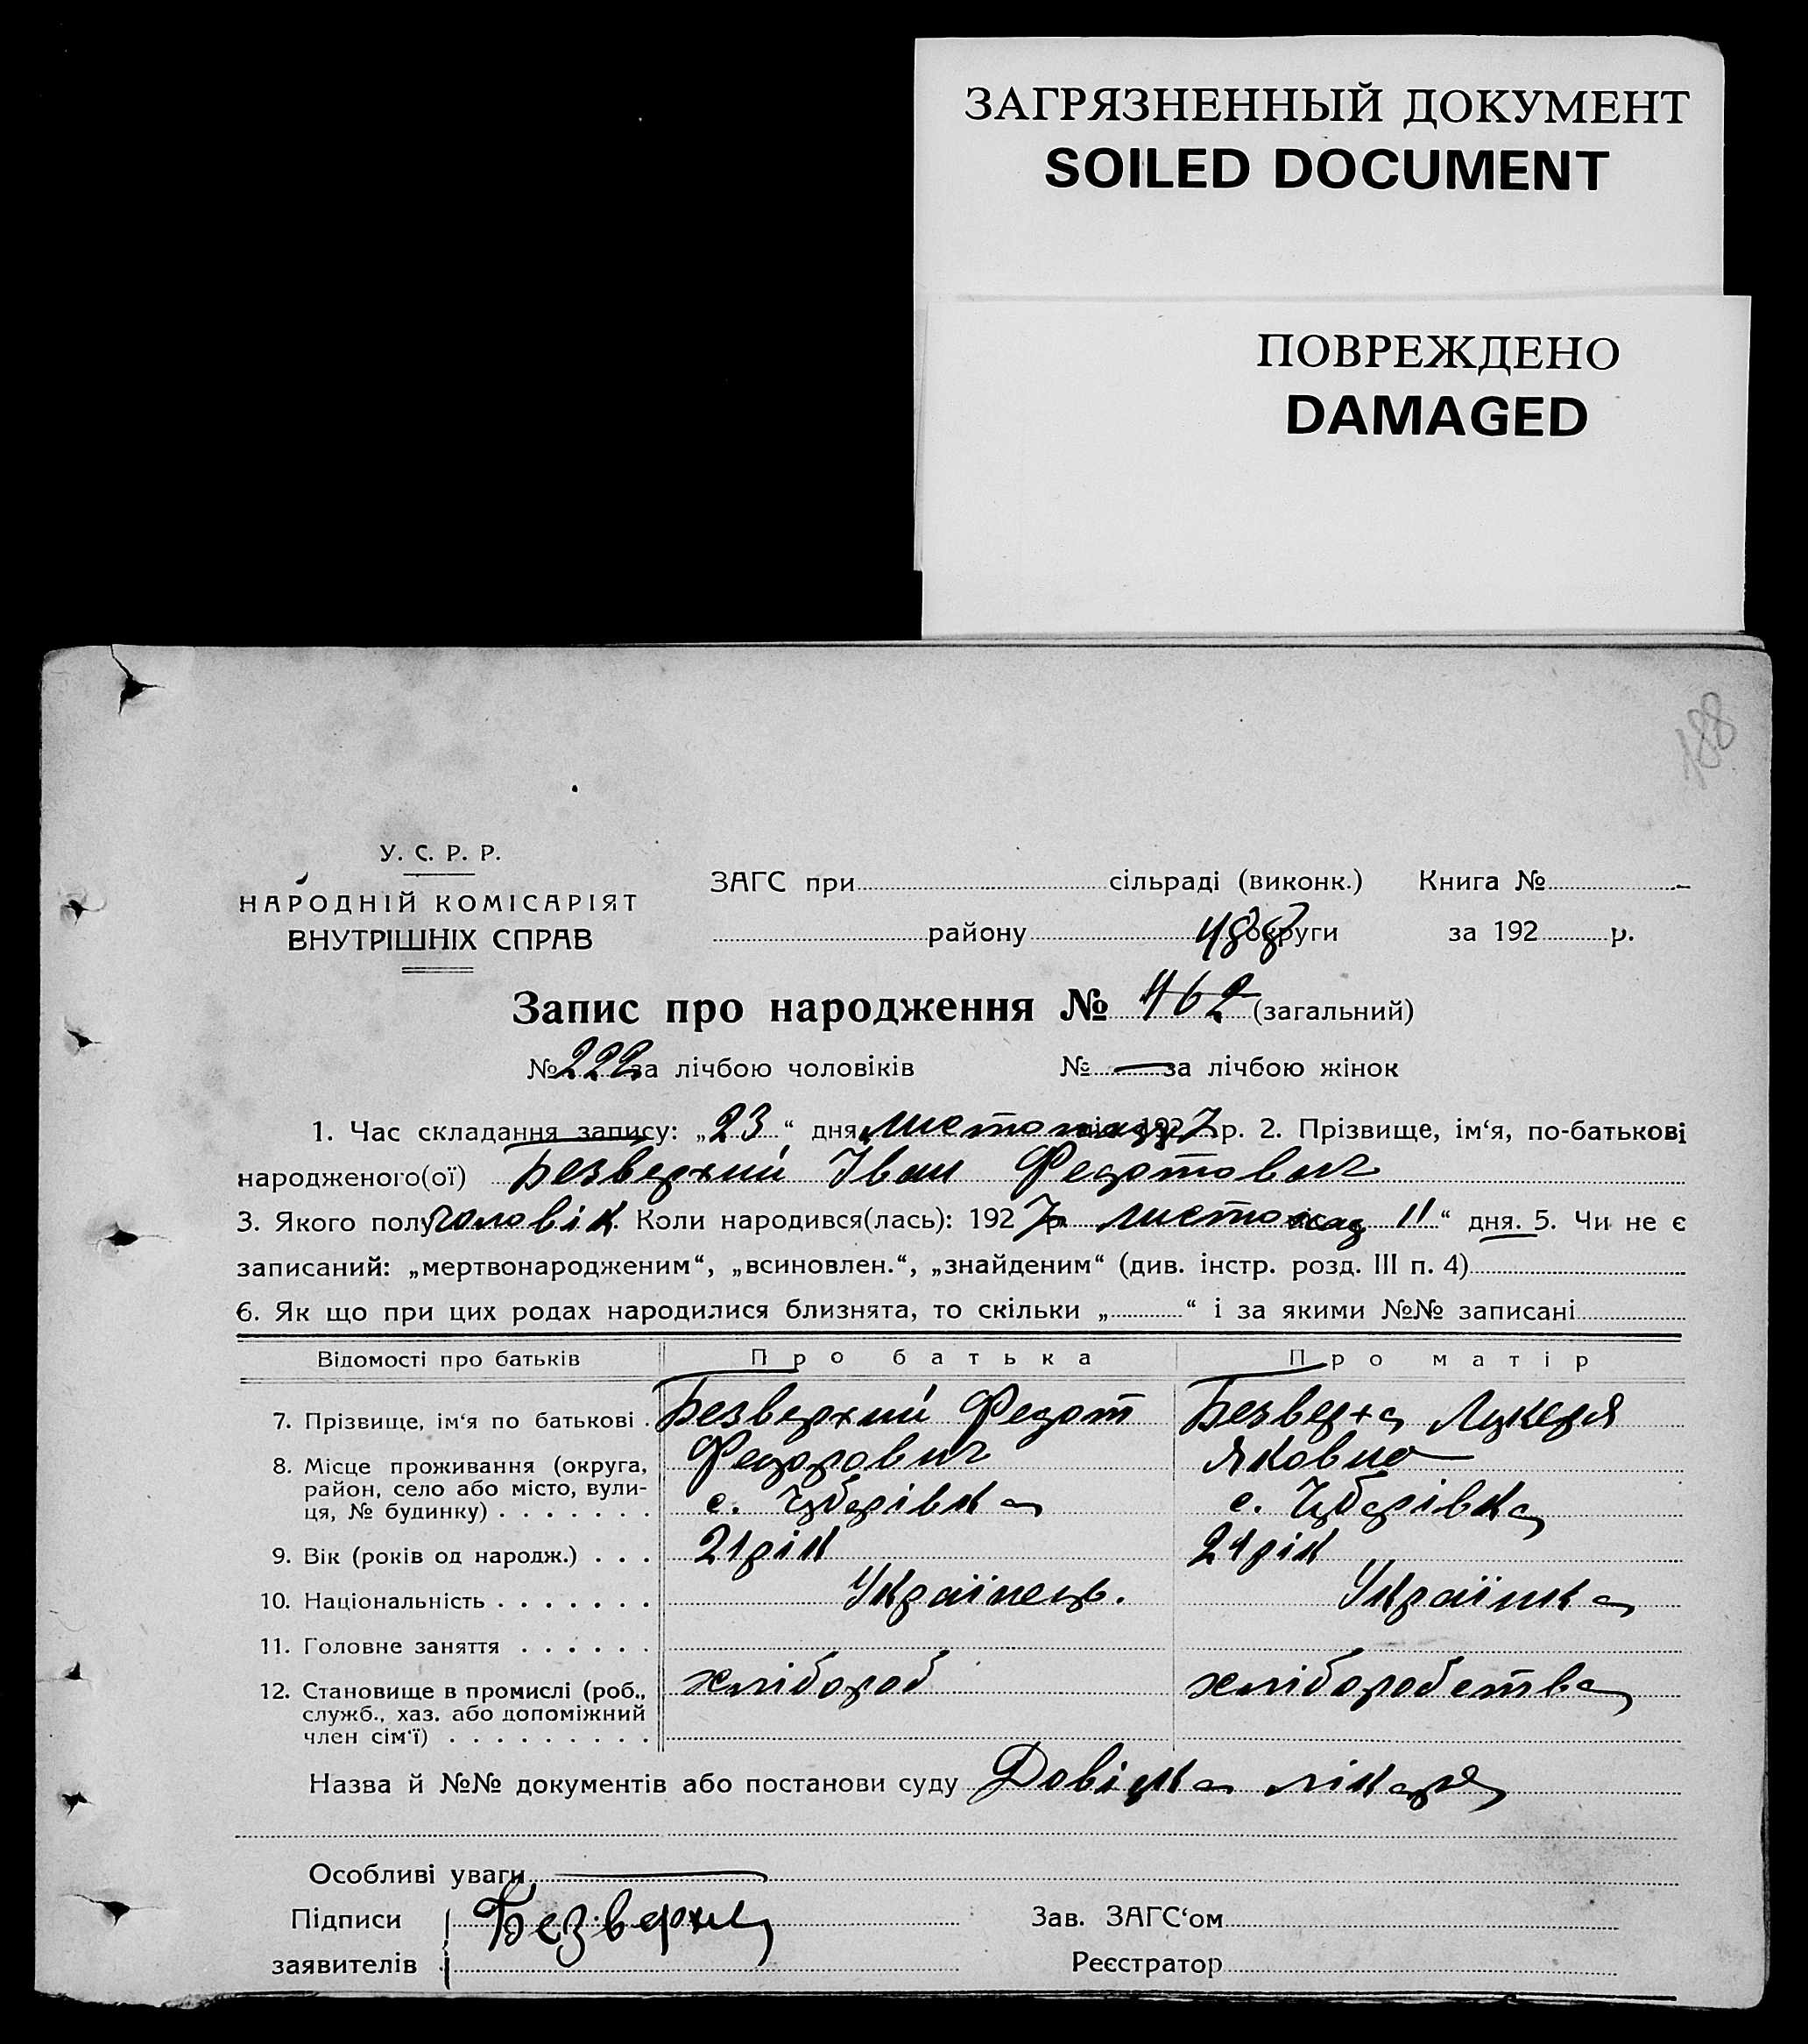 ЗАГРЯЗНЕННЫЙ ДОКУМЕНТ
SOILED DOCUMENT
ПОВРЕЖДЕНО
DAMAGED
188
У. С. Р. Р.
НАРОДНІЙ КОМІСАРІЯТ
ВНУТРІШНІХ СПРАВ
ЗАГС при сільраді (виконк.) Книга №
району округи за 192 р.
488
Запис про народження № 462 (загальний)
№ 222 за лічбою чоловіків № — за лічбою жінок
1. Час складання запису: „23“ дня листопад 1927 р. 2. Прізвище, ім‘я, по-батькові
народженого(ої) Безверхий Іван Федотович
3. Якого полу чоловік. Коли народився(лась): 1927 р. листопад 11“ дня. 5. Чи не є
записаний: „мертвонародженим“, „всиновлен.“, „знайденим“ (див. інстр. розд. III п. 4)
6. Як що при цих родах народилися близнята, то скільки „ “ і за якими №№ записані
Відомості про батьків Про батька Про матір
7. Прізвище, ім‘я по батькові . Безверхий Федот Безверха Лукеря
Федорович Яковна
8. Місце проживання (округа,
район, село або місто, вули-
ця, № будинку) . . . . . . . с. Чубарівка с. Чубарівка
9. Вік (років од народж.) . . . 21 рік 21 рік
10. Національність . . . . . . . Українець. Українка
11. Головне заняття . . . . . .
12. Становище в промислі (роб., хлібороб хліборобства
служб., хаз. або допоміжний
член сім‘ї) . . . . . . . . .
Назва й №№ документів або постанови суду Довідка лікаря
Особливі уваги —
Підписи Безверхи Зав. ЗАГС‘ом
заявителів Реєстратор